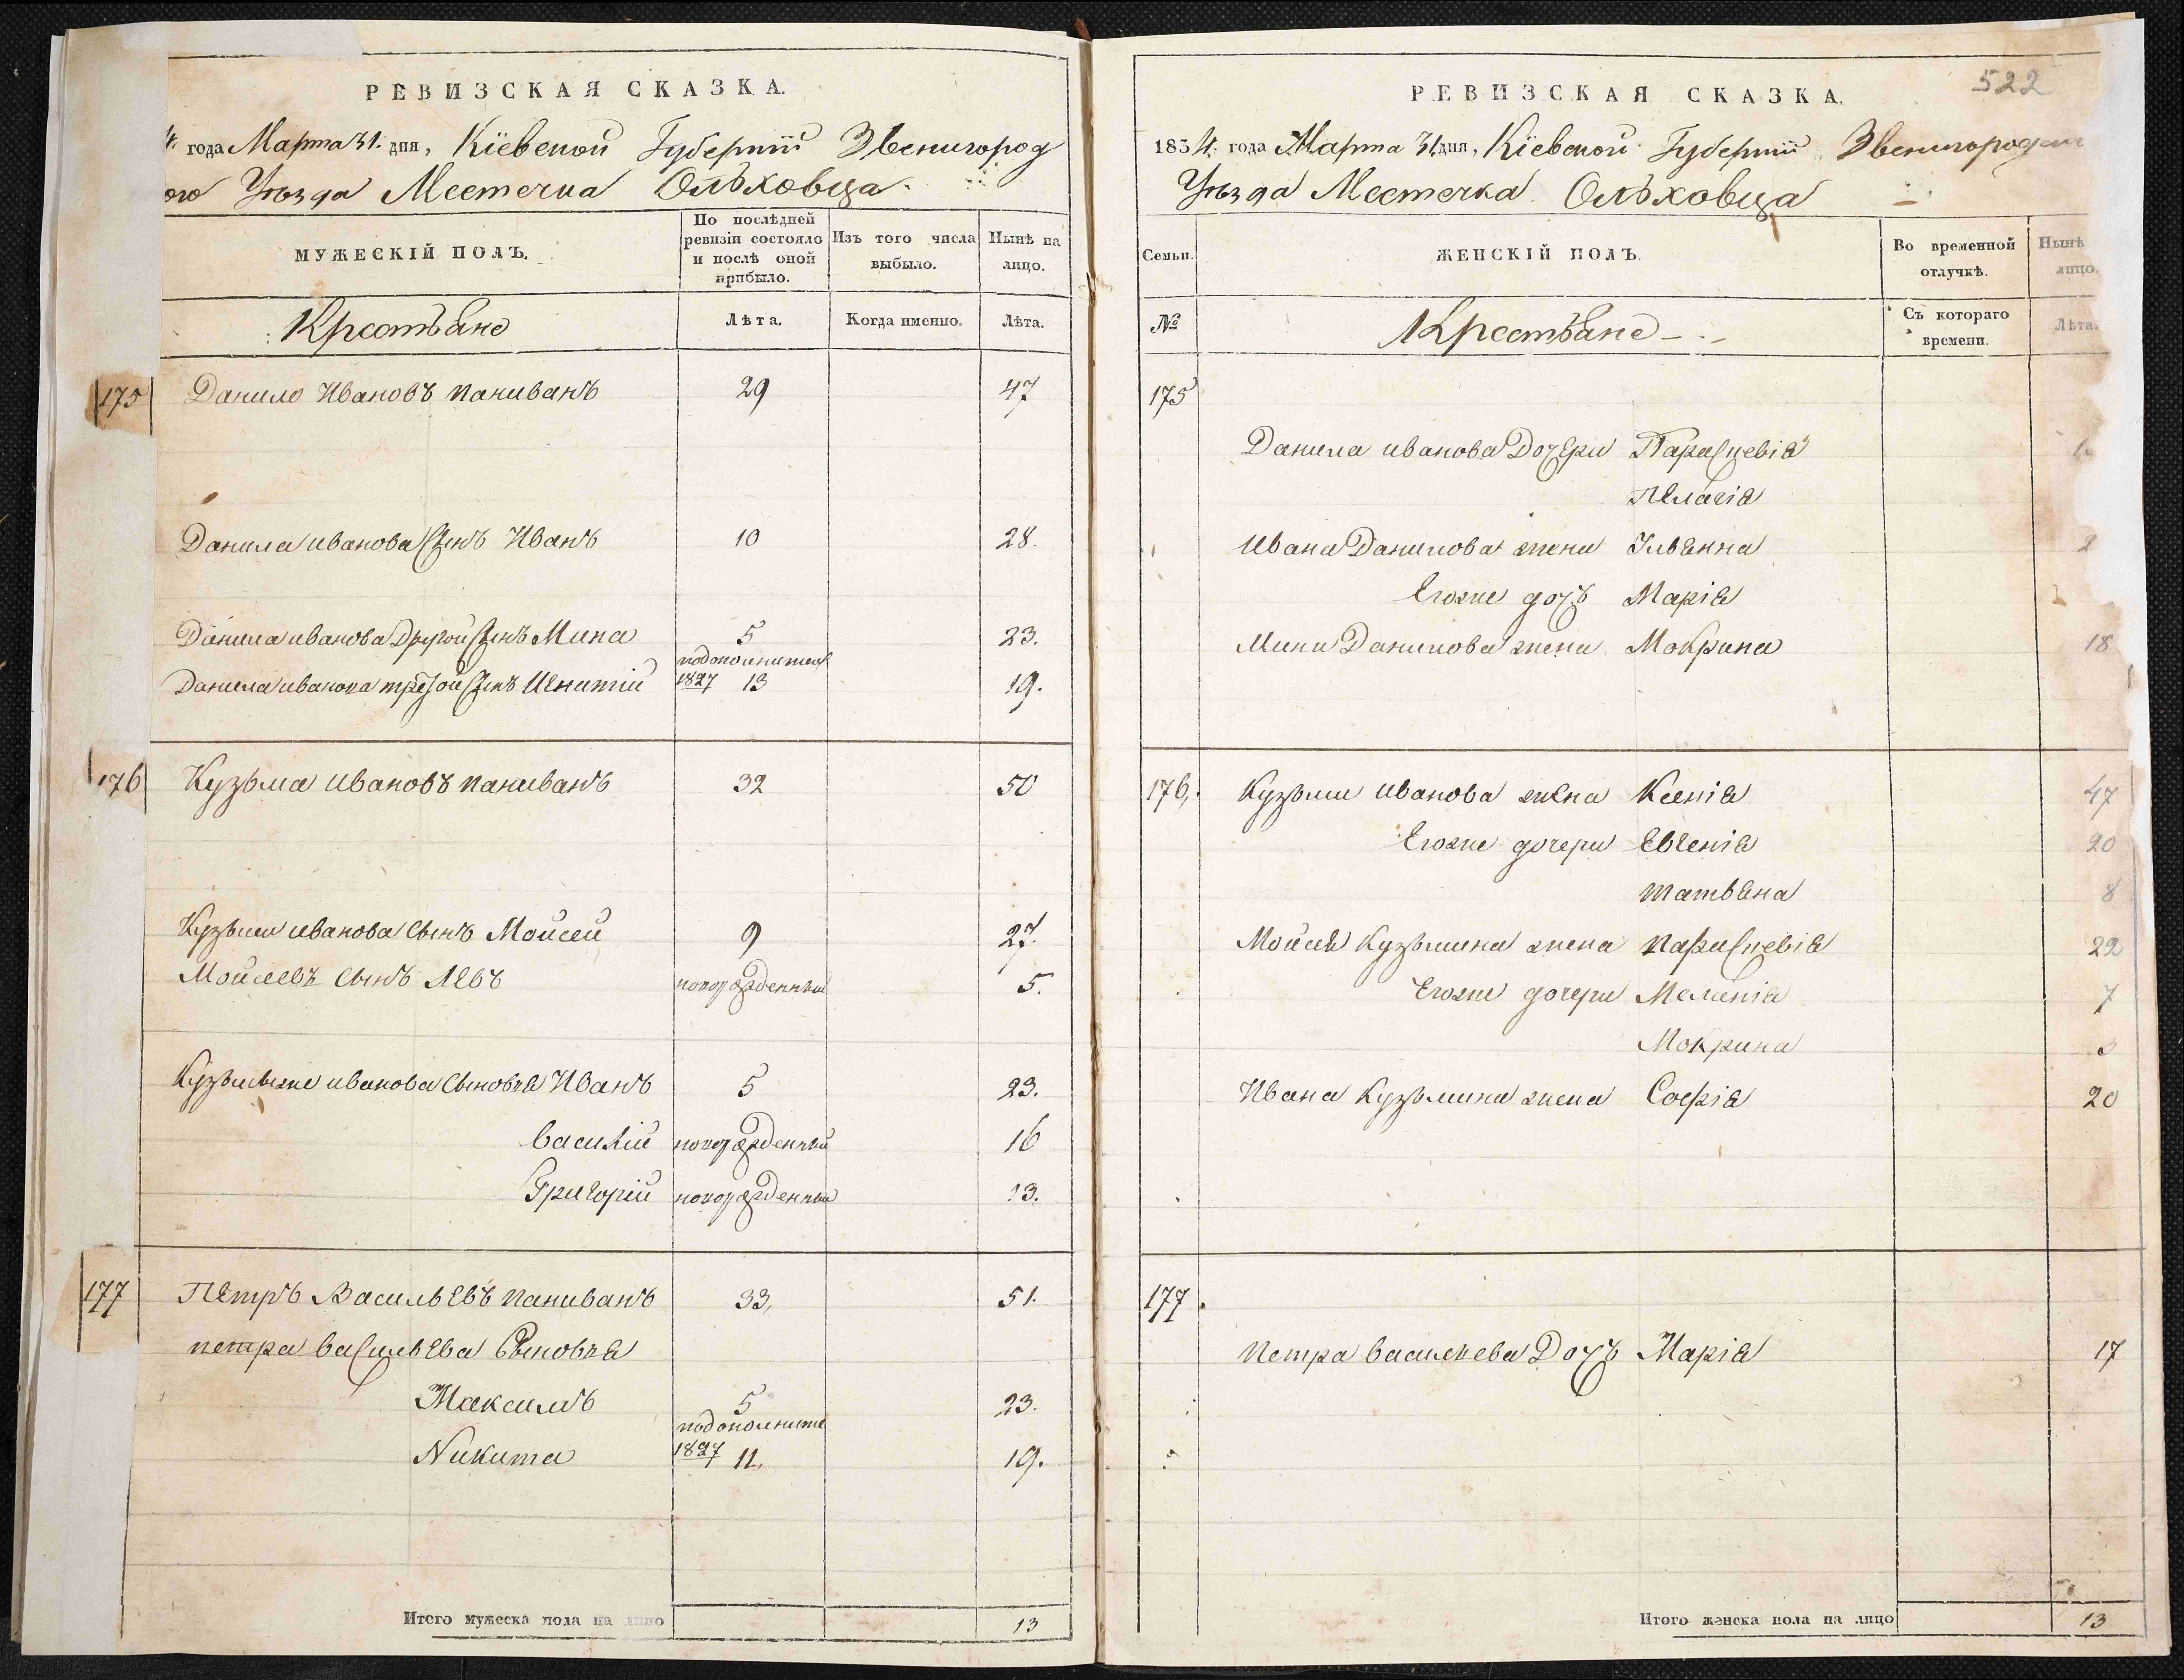 РЕВИЗСКАЯ СКАЗКА.
года Марта 31. дня, Кіевской Губерніи Звенигород
ого Уѣзда Местечка Ольховца.
МУЖЕСКІЙ ПОЛЪ.
По послѣдней ревизіи состояло и послѣ оной прибыло.
Изъ того числа выбыло.
Нынѣ на лицо.
Крестьяне
Лѣта.
Когда именно.
Лѣта.
175 Данило Ивановъ Паниванъ 29 47
Данила иванова Сынъ Иванъ 10 28.
Данила иванова Другой Сынъ Мина 5 23.
подополнител
Данила иванова третой Сынъ 1827 13 19.
176 Кузьма ивановъ паниванъ 32 50
Кузьми иванова сынъ Мойсей 9 27.
Мойсеевъ сынъ Левъ новорожденный 5.
Кузьмыже иванова сыновья Иванъ 5 23.
Василій новорожденный 16
Григорій новорожденный 13.
177 Петръ Васильевъ паниванъ 33, 51.
петра васильева Сыновья
Максимъ 5 23.
подополните
Никита 1827 11, 19.
Итого мужеска пола на лицо 13
522
РЕВИЗСКАЯ СКАЗКА.
1834. года Марта 31 дня, Кіевской Губерніи
Уѣзда Местечка Ольховца
Семьи.
ЖЕНСКІЙ ПОЛЪ.
Во временной отлучкѣ.
Нынѣ лицо.
№
Крестьяне
Съ котораго времени.
Лѣта.
175
Данила иванова Дочери Параскевія
пелагія
Ивана Данилова жена Ульянна
Егоже дочъ Марія
Мини Данилова жена Мокрина 18
176, Кузьми иванова жена Ксенія 47
Егоже дочери Евгенія 20
татьяна 8
Мойсея Кузьмина жена параскевія 22
Егоже дочери Меланія 7
Мокрина 3
Ивана Кузьмина жена Софія 20
177.
петра васильева Дочъ Марія 17
Итого женска пола на лицо 13